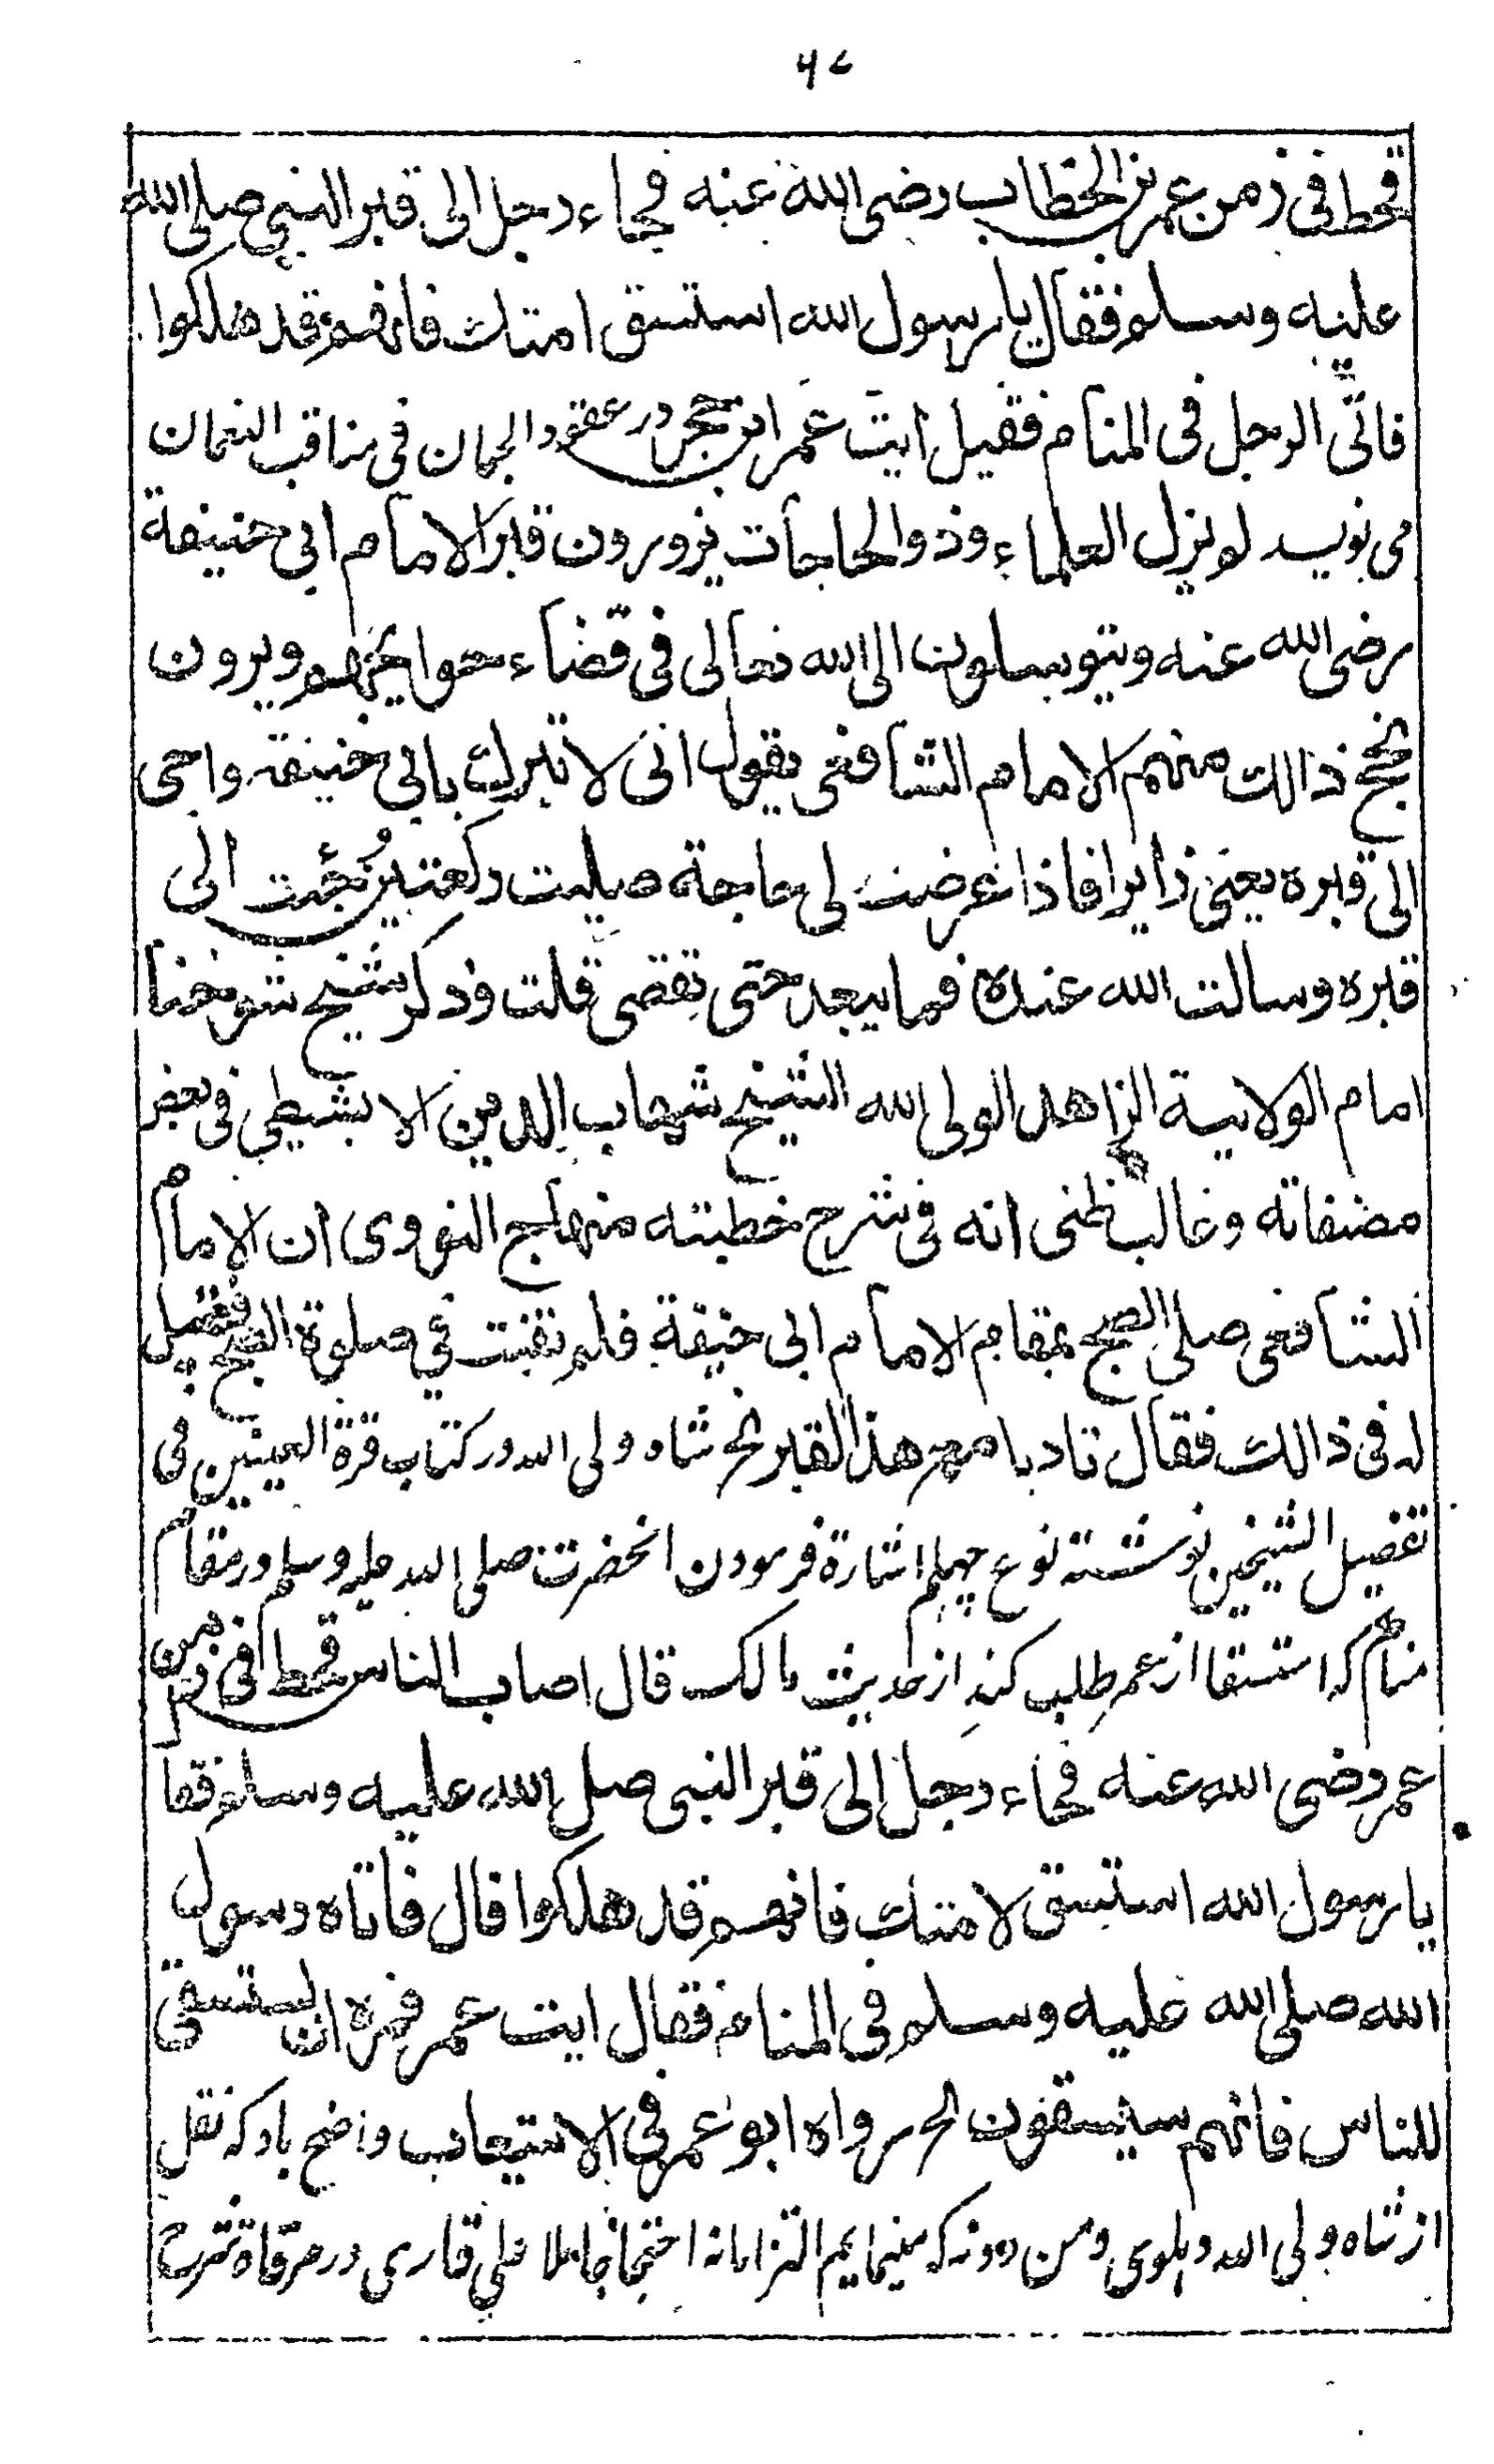 ۶۷
قحط فی زمن عمر بن الخطاب رضی الله عنه فجاء رجل الی قبر النبی صلی الله
علیه وسلم فقال یا رسول الله استسق امتك فانهم قد هلكوا
فاتی الرجل فی المنام فقیل ایت عمر ابن حجر در عقود الجمان فی مناقب النعمان
می نویسد لم یزل العلماء وذو الحاجات یزورون قبر الامام ابی حنیفة
رضی الله عنه ویتوسلون الی الله تعالی فی قضاء حوایجهم ویرون
نجح ذالك منهم الامام الشافعی یقول انی لا تبرك بابی حنیفة واجی
الی قبره یعنی زایرا فاذا عرضت لی حاجة صلیت ركعتین وجئت الی
قبره وسالت الله عنده فما یبعد حتی تقضی قلت وذكر شیخ شیوخنا
امام الولایة الزاهد الولی لله الشیخ شهاب الدین الابشیطی فی بعض
مصنفاته وغالب ظنی انه فی شرح خطبته منهاج النووی ان الامام
الشافعی صلی الصبح بمقام الامام ابی حنیفة فلم یقنت فی صلوة الصبح فقیل
له فی ذالك فقال تادبا مع هذا القبر الخ شاه ولی الله در كتاب قرة العینین فی
تفضیل الشیخین نوشته نوع چهلم اشارة فرمودن انحضرت صلی الله علیه وسلم در مقام
منام كه استسقا از عمر طلب كنند از حدیث مالك قال اصاب الناس قحط فی زمن
عمر رضی الله عنه فجاء رجل الی قبر النبی صلی الله علیه وسلم فقا
یا رسول الله استسق لامتك فانهم قد هلكوا قال فاتاه رسول
الله صلی الله علیه وسلم فی المنام فقال ایت عمر فمره ان یستسقی
للناس فانهم سیسقون الخ رواه ابو عمر فی الاستیعاب واضح باد كه نقل
از شاه ولی الله دهلوی ومن دونه كه مینمایم التزامانه احتجاجا ملا علی قاری در مرقاة شرح